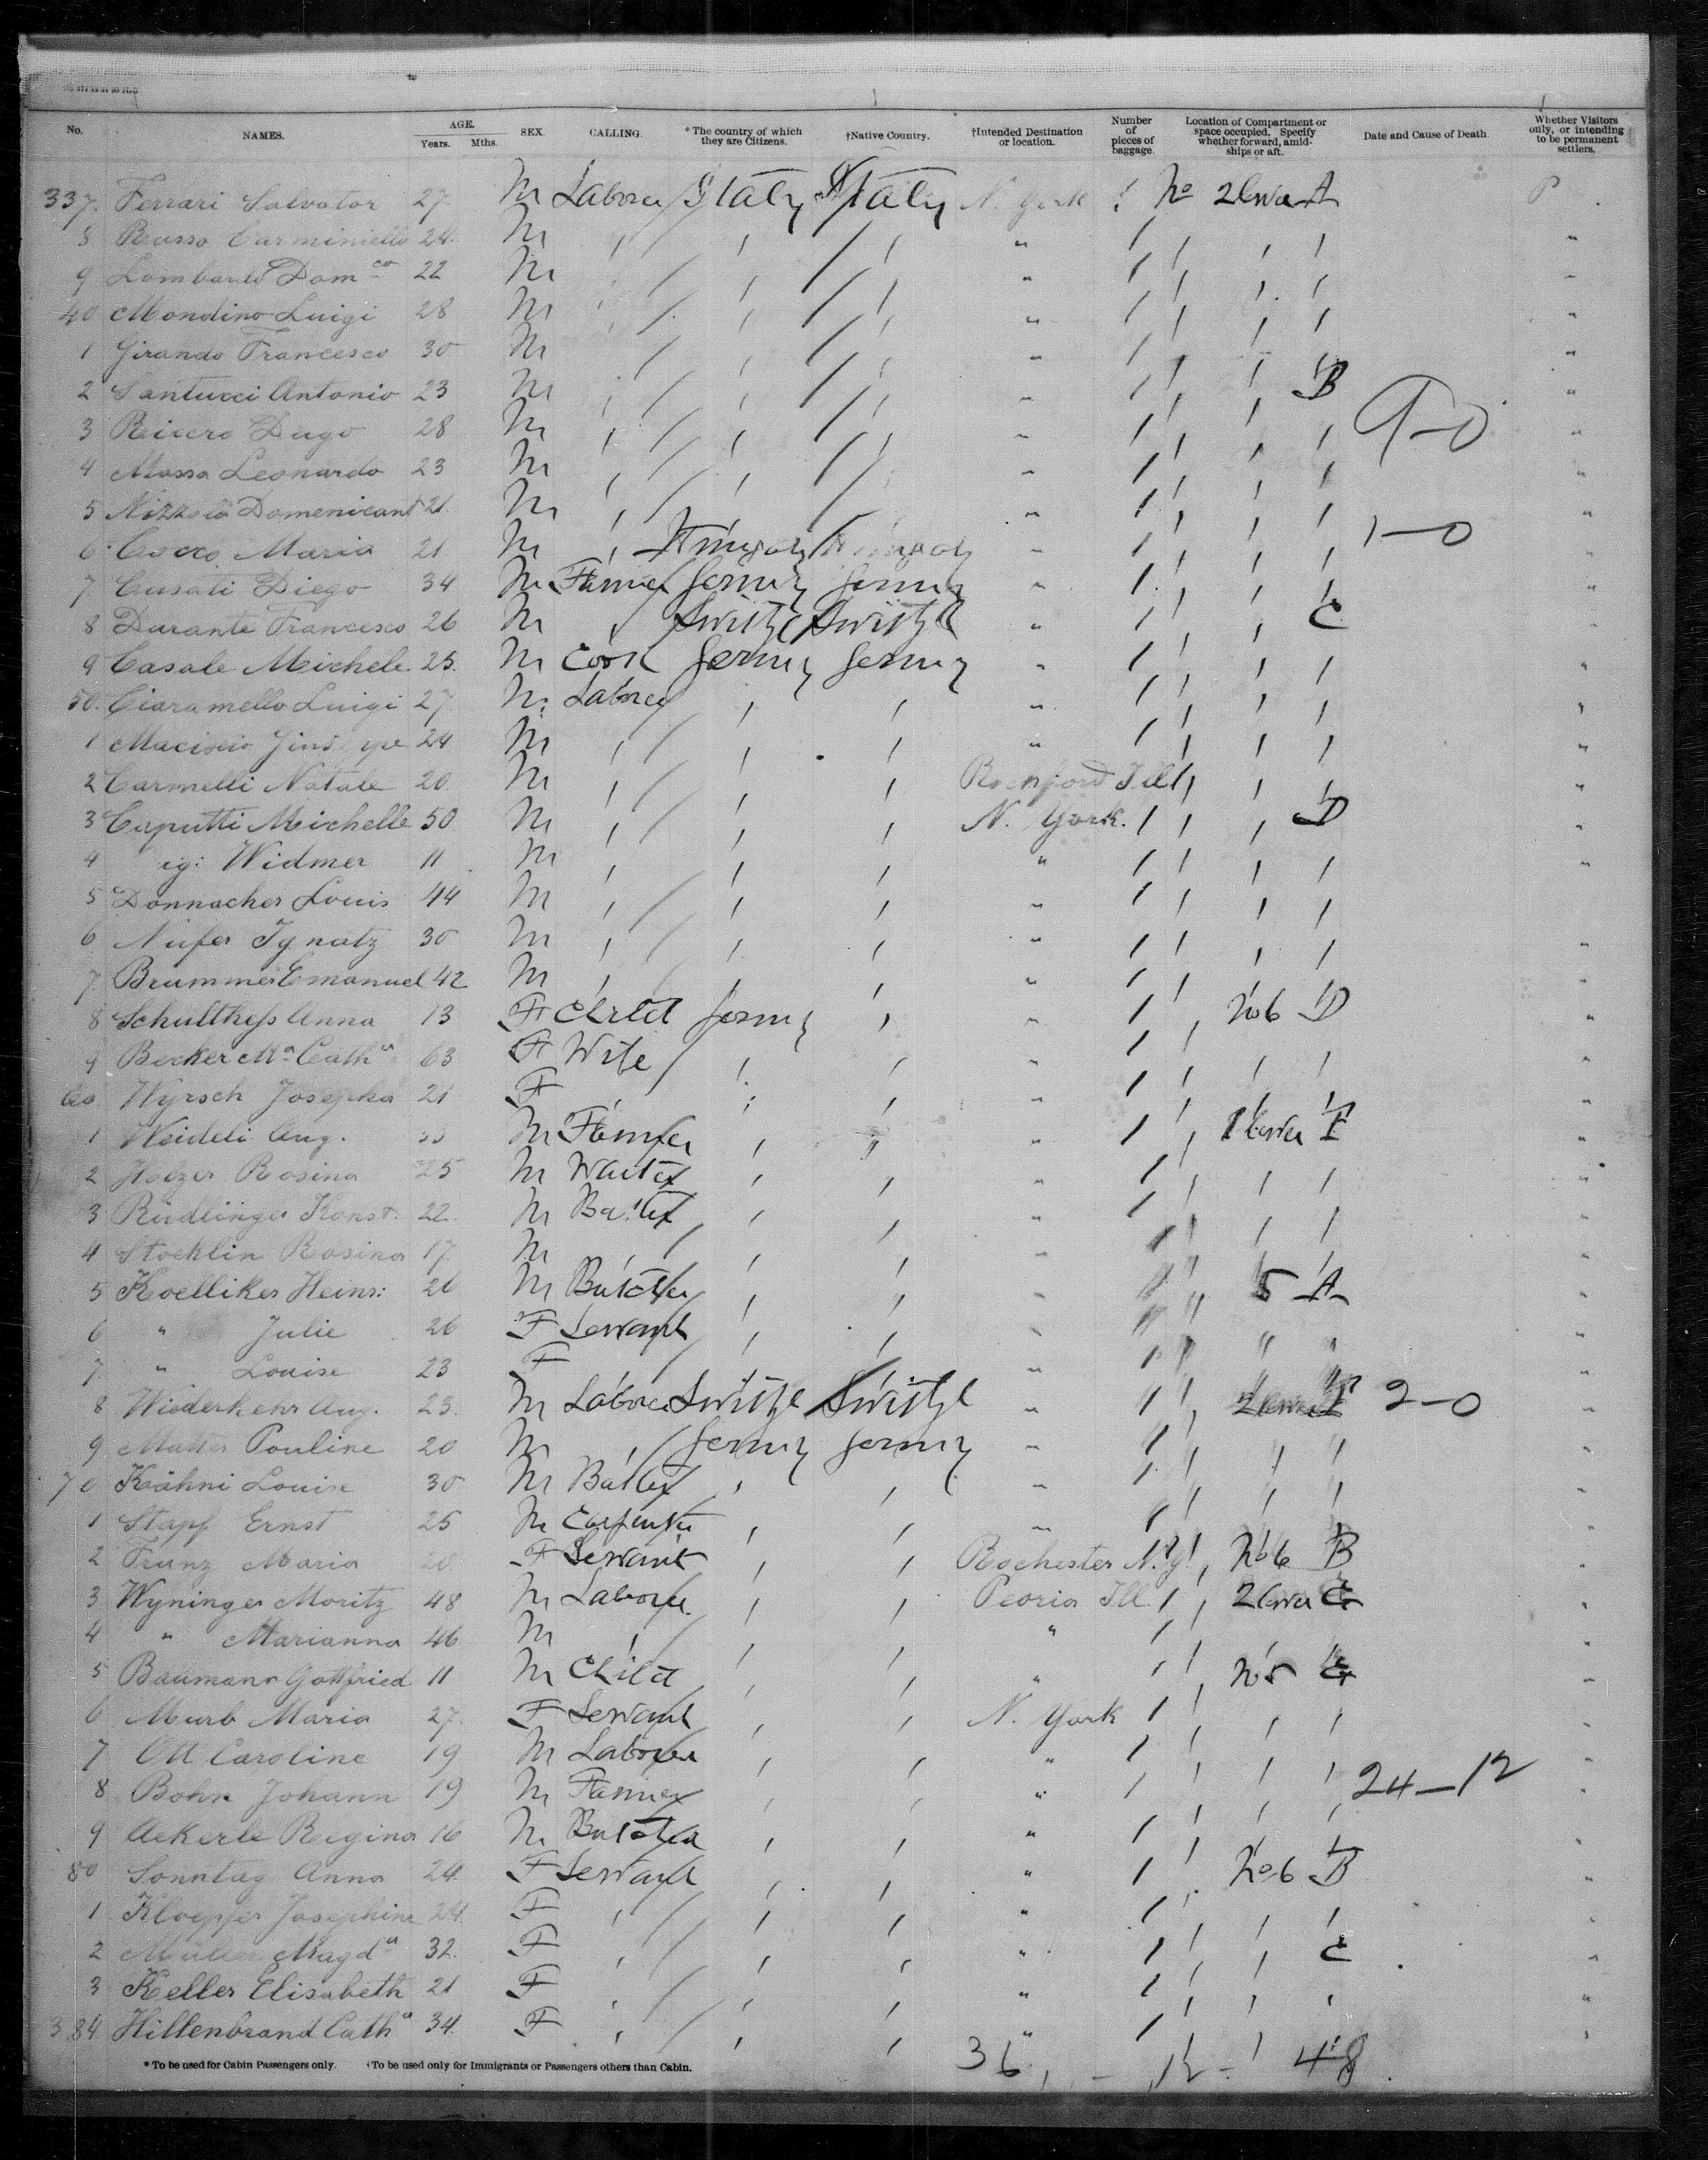 No. NAMES. AGE. Years. Mths. SEX. CALLING. * The country of which they are Citizens. †Native Country. †Intended Destination or location. Number of pieces of baggage Location of Compartment or space occupied. Specify whether forward, amidships or aft. Date and Cause of Death. Whether Visitors only, or intending to be permanent settlers.
337. Ferrari Salvator 27 M Laborer Italy Italy N. York 1 No 2 lower A P
8 Russo Carminiello 24 M " " " " 1 " " " "
9 Lombardi Dom co 22 M " " " " 1 " " " "
40 Mondino Luigi 28 M " " " " 1 " " " "
1 Girando Francesco 30 M " " " " 1 " " " "
2 Santucci Antonio 23 M " " " " 1 " " B "
3 28 M " " " " 1 " " " 9-0 "
4 Massa Leonardo 23 M " " " " 1 " " " "
5 21 M " " " " 1 " " " "
6 Cocco Maria 21 M " " 1 " " " 1-0 "
7 Cusati Diego 34 M Farmer Germy Germy " 1 " " " "
8 Durante Francesco 26 M " Switzl Switzl " 1 " " C "
9 Casale Michele 25. M Cook Germy Germy " 1 " " " "
50. Ciaramello Luigi 27 M Laborer " " " 1 " " " "
1 24 M " " " " 1 " " " "
2 Carmelli Natale 20. M " " " Rockford Ill 1 " " " "
3 Caputti Michelle 50 M " " " N. York. 1 " " D "
4 Widmer 11 M " " " " 1 " " " "
5 Donnacher Louis 44 M " " " " 1 " " "
6 Nufer Ignatz 30 M " " " " 1 " " " "
7 Brummer Emanuel 42 M " " " " 1 " " " "
8 Schultheß Anna 13 F Child Germy " " 1 " No 6 D "
9 Becker Ma Catha 63 F Wife " " " 1 " " " "
60. Wyrsch Josepha 21 F " " " " 1 " " " "
1 Weideli Aug. M Farmer " " " 1 " 1 lower E "
2 Holzer Rosina 25 M Waiter " " " 1 " " " "
3 Rüdlinger Konst. 22. M " " " 1 " " " "
4 Stocklin Rosina 17 M " " " " 1 " " " "
5 Koelliker Heinr: 26 M Butcher " " " 1 " 5 A "
6 " Julie 26 F Servant " " " 1 " " " "
7 " Louise 23 F " " " " 1 " " " "
8 Wiederkehr Aug. 23. M Laborer Switzl Switzl " 1 " 2 lower E 2-0 "
9 Matter Pauline 20 M " Germy Germy " 1 " " " "
70 Kähni Louise 30 M " " " 1 " " " "
1 Stapf Ernst 25 M Carpenter " " " 1 " " " "
2 Maria 20 F Servant " " Rochester N.Y. 1 " No 6 B "
3 Wyninger Moritz 48 M Laborer " " Peoria Ill 1 " 2 lower C "
4 " Marianna 46 M " " " " 1 " " " "
5 Baumann Gottfried 11 M Child " " " 1 " No 5 C "
6 Murb Maria 27. F Servant " " N. York 1 " " " "
7 Ott Caroline 19 M Laborer " " " 1 " " " "
8 Bohn Johann 19 M Farmer " " " 1 " " " 24-12 "
9 Ackerle Regina 16 M Butcher " " " 1 " " " "
80 Sonntag Anna 24 F Servant " " " 1 " No 6 B "
1 Kloepfer Josephine 24. F " " " " 1 " " " "
2 Müller Magda 32. F " " " " 1 " " C "
3 Keller Elisabeth 21 F " " " " 1 " " " "
384. Hillenbrand Catha 34. F " " " " 1 " " " "
* To be used for Cabin Passengers only. †To be used only for Immigrants or Passengers others than Cabin.
36 12 48